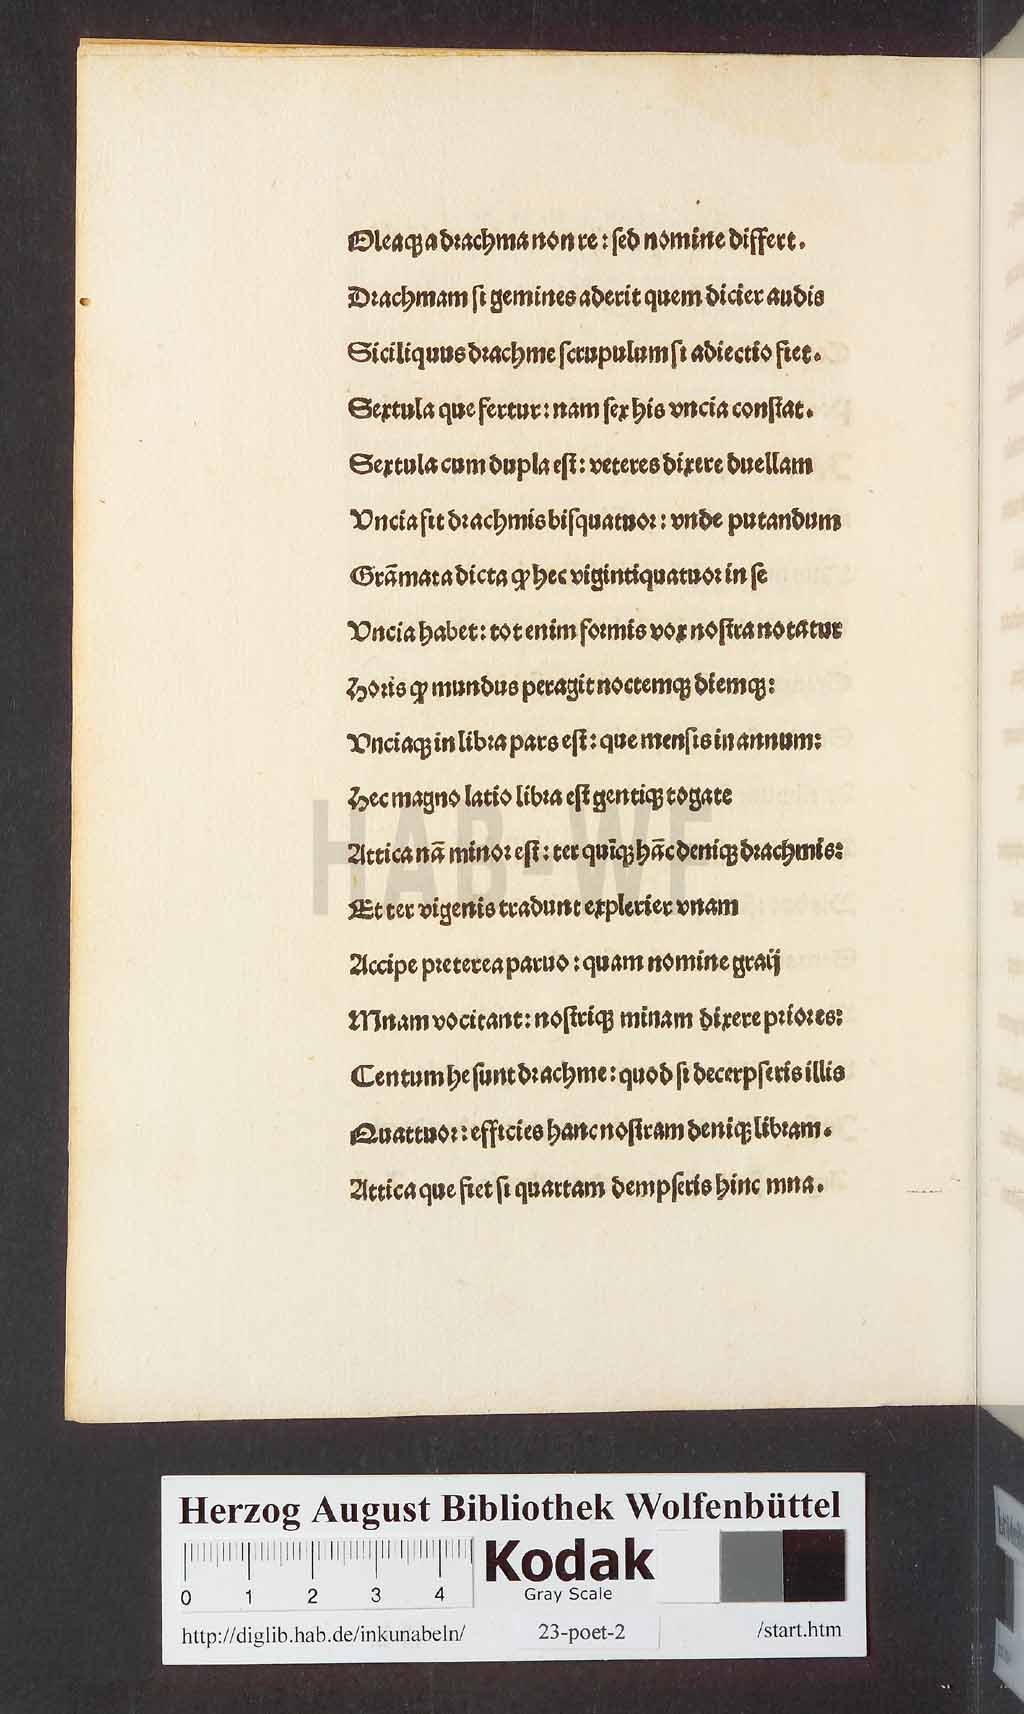 Oleaqꝫ a drachma non re: sed nomine differt.
Drachmam si gemines aderit quem dicier audis
Siciliquus drachme scrupulum si adiectio fiet.
Sextula que fertur: nam sex his vncia constat.
Sextula cum dupla est: veteres dixere duellam
Vncia fit drachmis bisquatuor: vnde putandum
Grāmata dicta ꝙ hec vigintiquatuor in se
Vncia habet: tot enim formis vox nostra notatur
Horis ꝙ mundus peragit noctemqꝫ diemqꝫ:
Vnciaqꝫ in libra pars est: que mensis in annum:
Hec magno latio libra est gentiqꝫ togate
Attica nā minor est: ter quīqꝫ hāc deniqꝫ drachmis:
Et ter vigenis tradunt explerier vnam
Accipe preterea paruo: quam nomine graij
Mnam vocitant: nostriqꝫ minam dixere priores:
Centum he sunt drachme: quod si decerpseris illis
Quattuor: efficies hanc nostram deniqꝫ libram.
Attica que fiet si quartam dempseris hinc mna.
HAB-WF
Herzog August Bibliothek Wolfenbüttel
0 1 2 3 4
Kodak
Gray Scale
http://diglib.hab.de/inkunabeln/ 23-poet-2 /start.htm